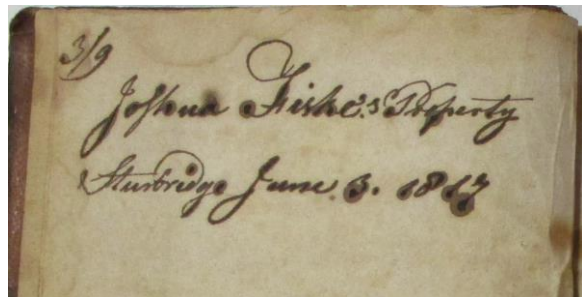 3/9
Joshua Fiske's Property
Sturbridge June 3. 1817